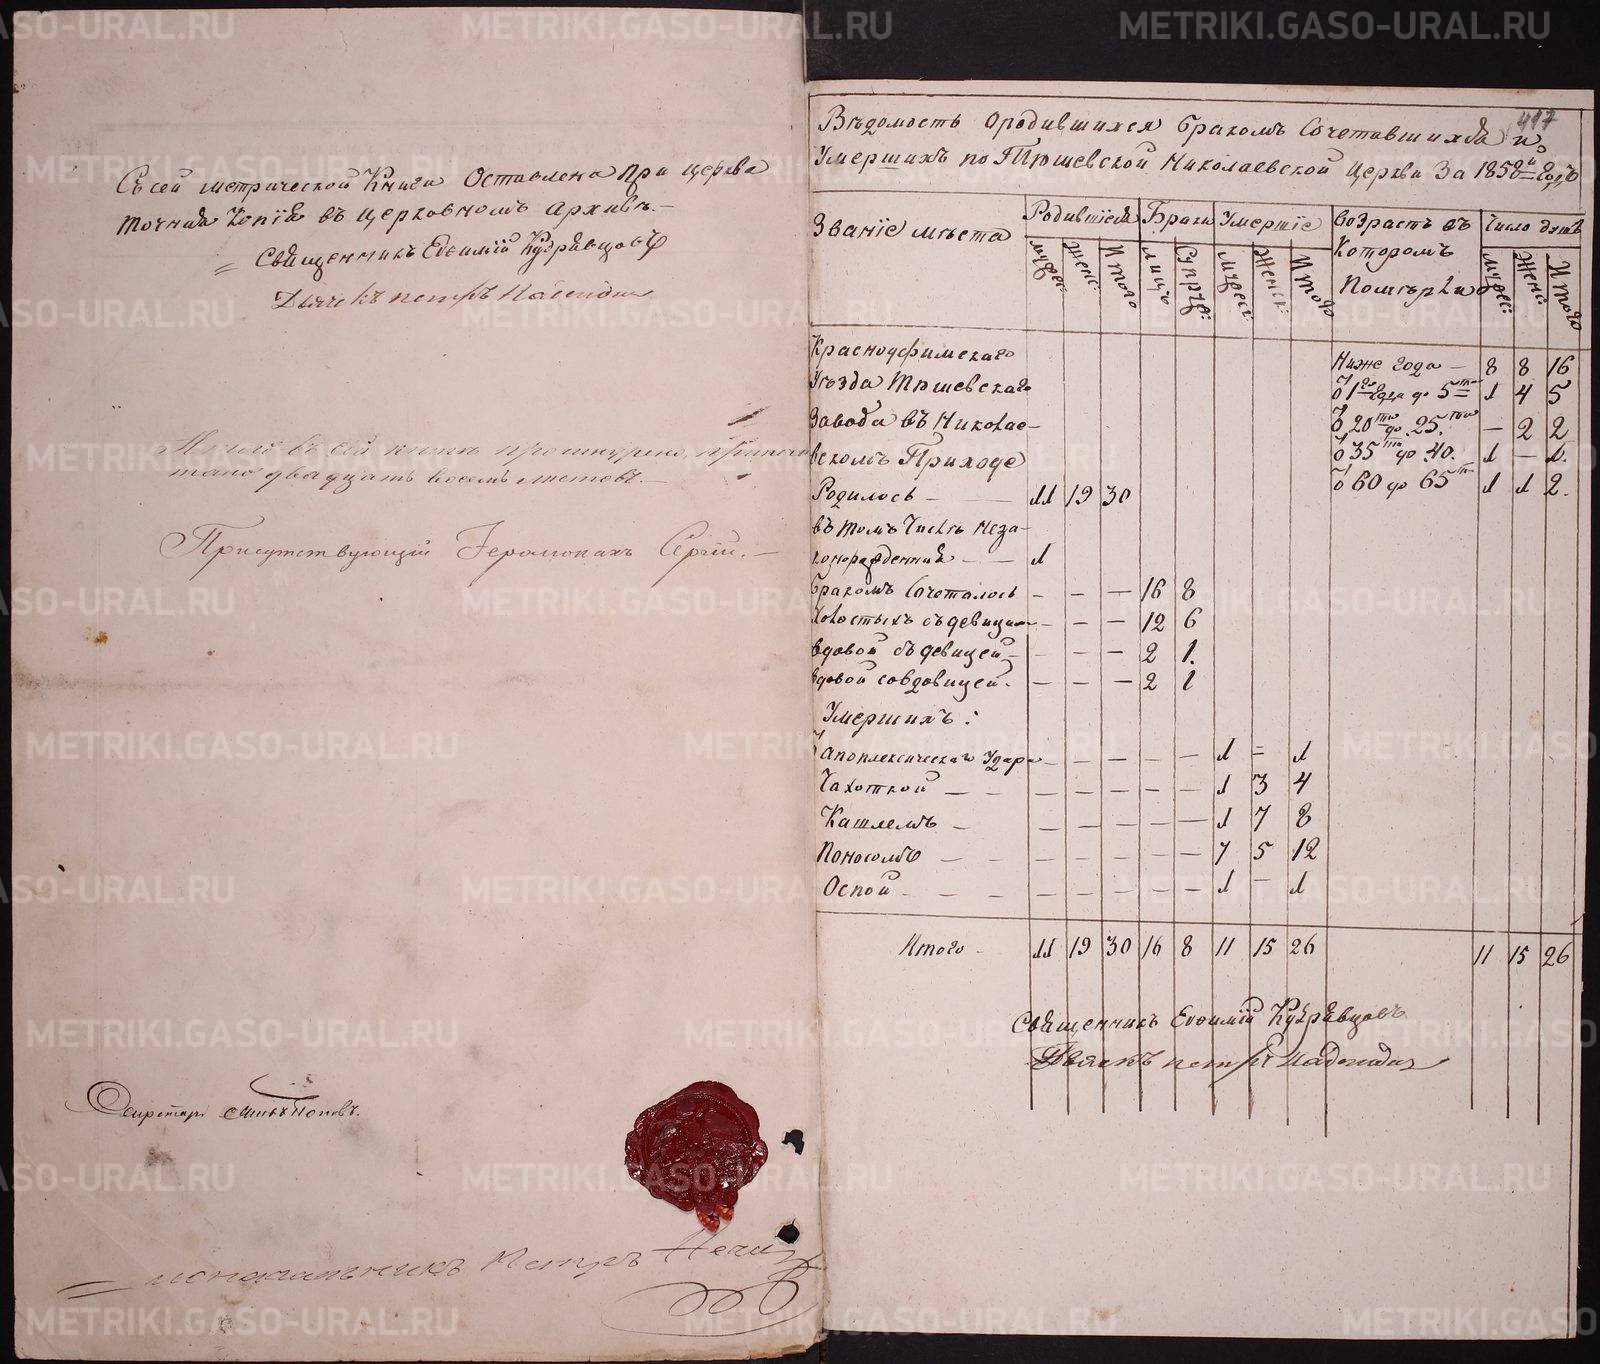 Съ сей метрической Книги Оставлена при церкве
точная Копiя въ церковномъ Архиве.
Священникъ Евфимiй Кудрявцовъ
Дьячекъ петръ
А всего въ сей книге прошнурено,
двадцать восемь листовъ.
Присутствующiй Iеромонахъ Сергiй.
Секретарь Поповъ.
Петръ
417
Вѣдомость ородившихся бракомъ Сочетавшихся и
Умершихъ по Тюшевской Николаевской Церкви За 1858й Годъ
Званiе мѣста
Родившiеся
Браки
Умершiе
возрастъ въ
Которомъ
Померли
Число душъ
мужес:
женс:
Итого
лицъ
Супруж:
мужеск:
Женск:
Итого
мужес:
Женс:
Итого
Красноуфимскаго
Уезда Тюшевскаго
Завода въ Николае-
вскомъ Приходе
Ниже года 8 8 16
О 1го года до 5ти 1 4 5
О 20ти до 25ти — 2 2
О 35ти до 40. 1 — 1.
О 60 до 65ти 1 1 2.
Родилось 11 19 30
въ томъ Числе Неза-
конорожденний 1
Бракомъ Сочеталось — — — 16 8
Холостыхъ съ девицами — — — 12 6
вдовой съ девицей — — — 2 1.
вдовой совдовицей — — — 2 1
Умершихъ:
О Апоплексическаго Удара — — — — — 1 = 1
Чахоткой — — — — — 1 3 4
Кашлемъ — — — — — 1 7 8
Поносомъ — — — — — 7 5 12
Оспой — — — — — 1 — 1
Итого 11 19 30 16 8 11 15 26 11 15 26
Священникъ Евфимiй Кудрявцовъ
петръ
METRIKI.GASO-URAL.RU